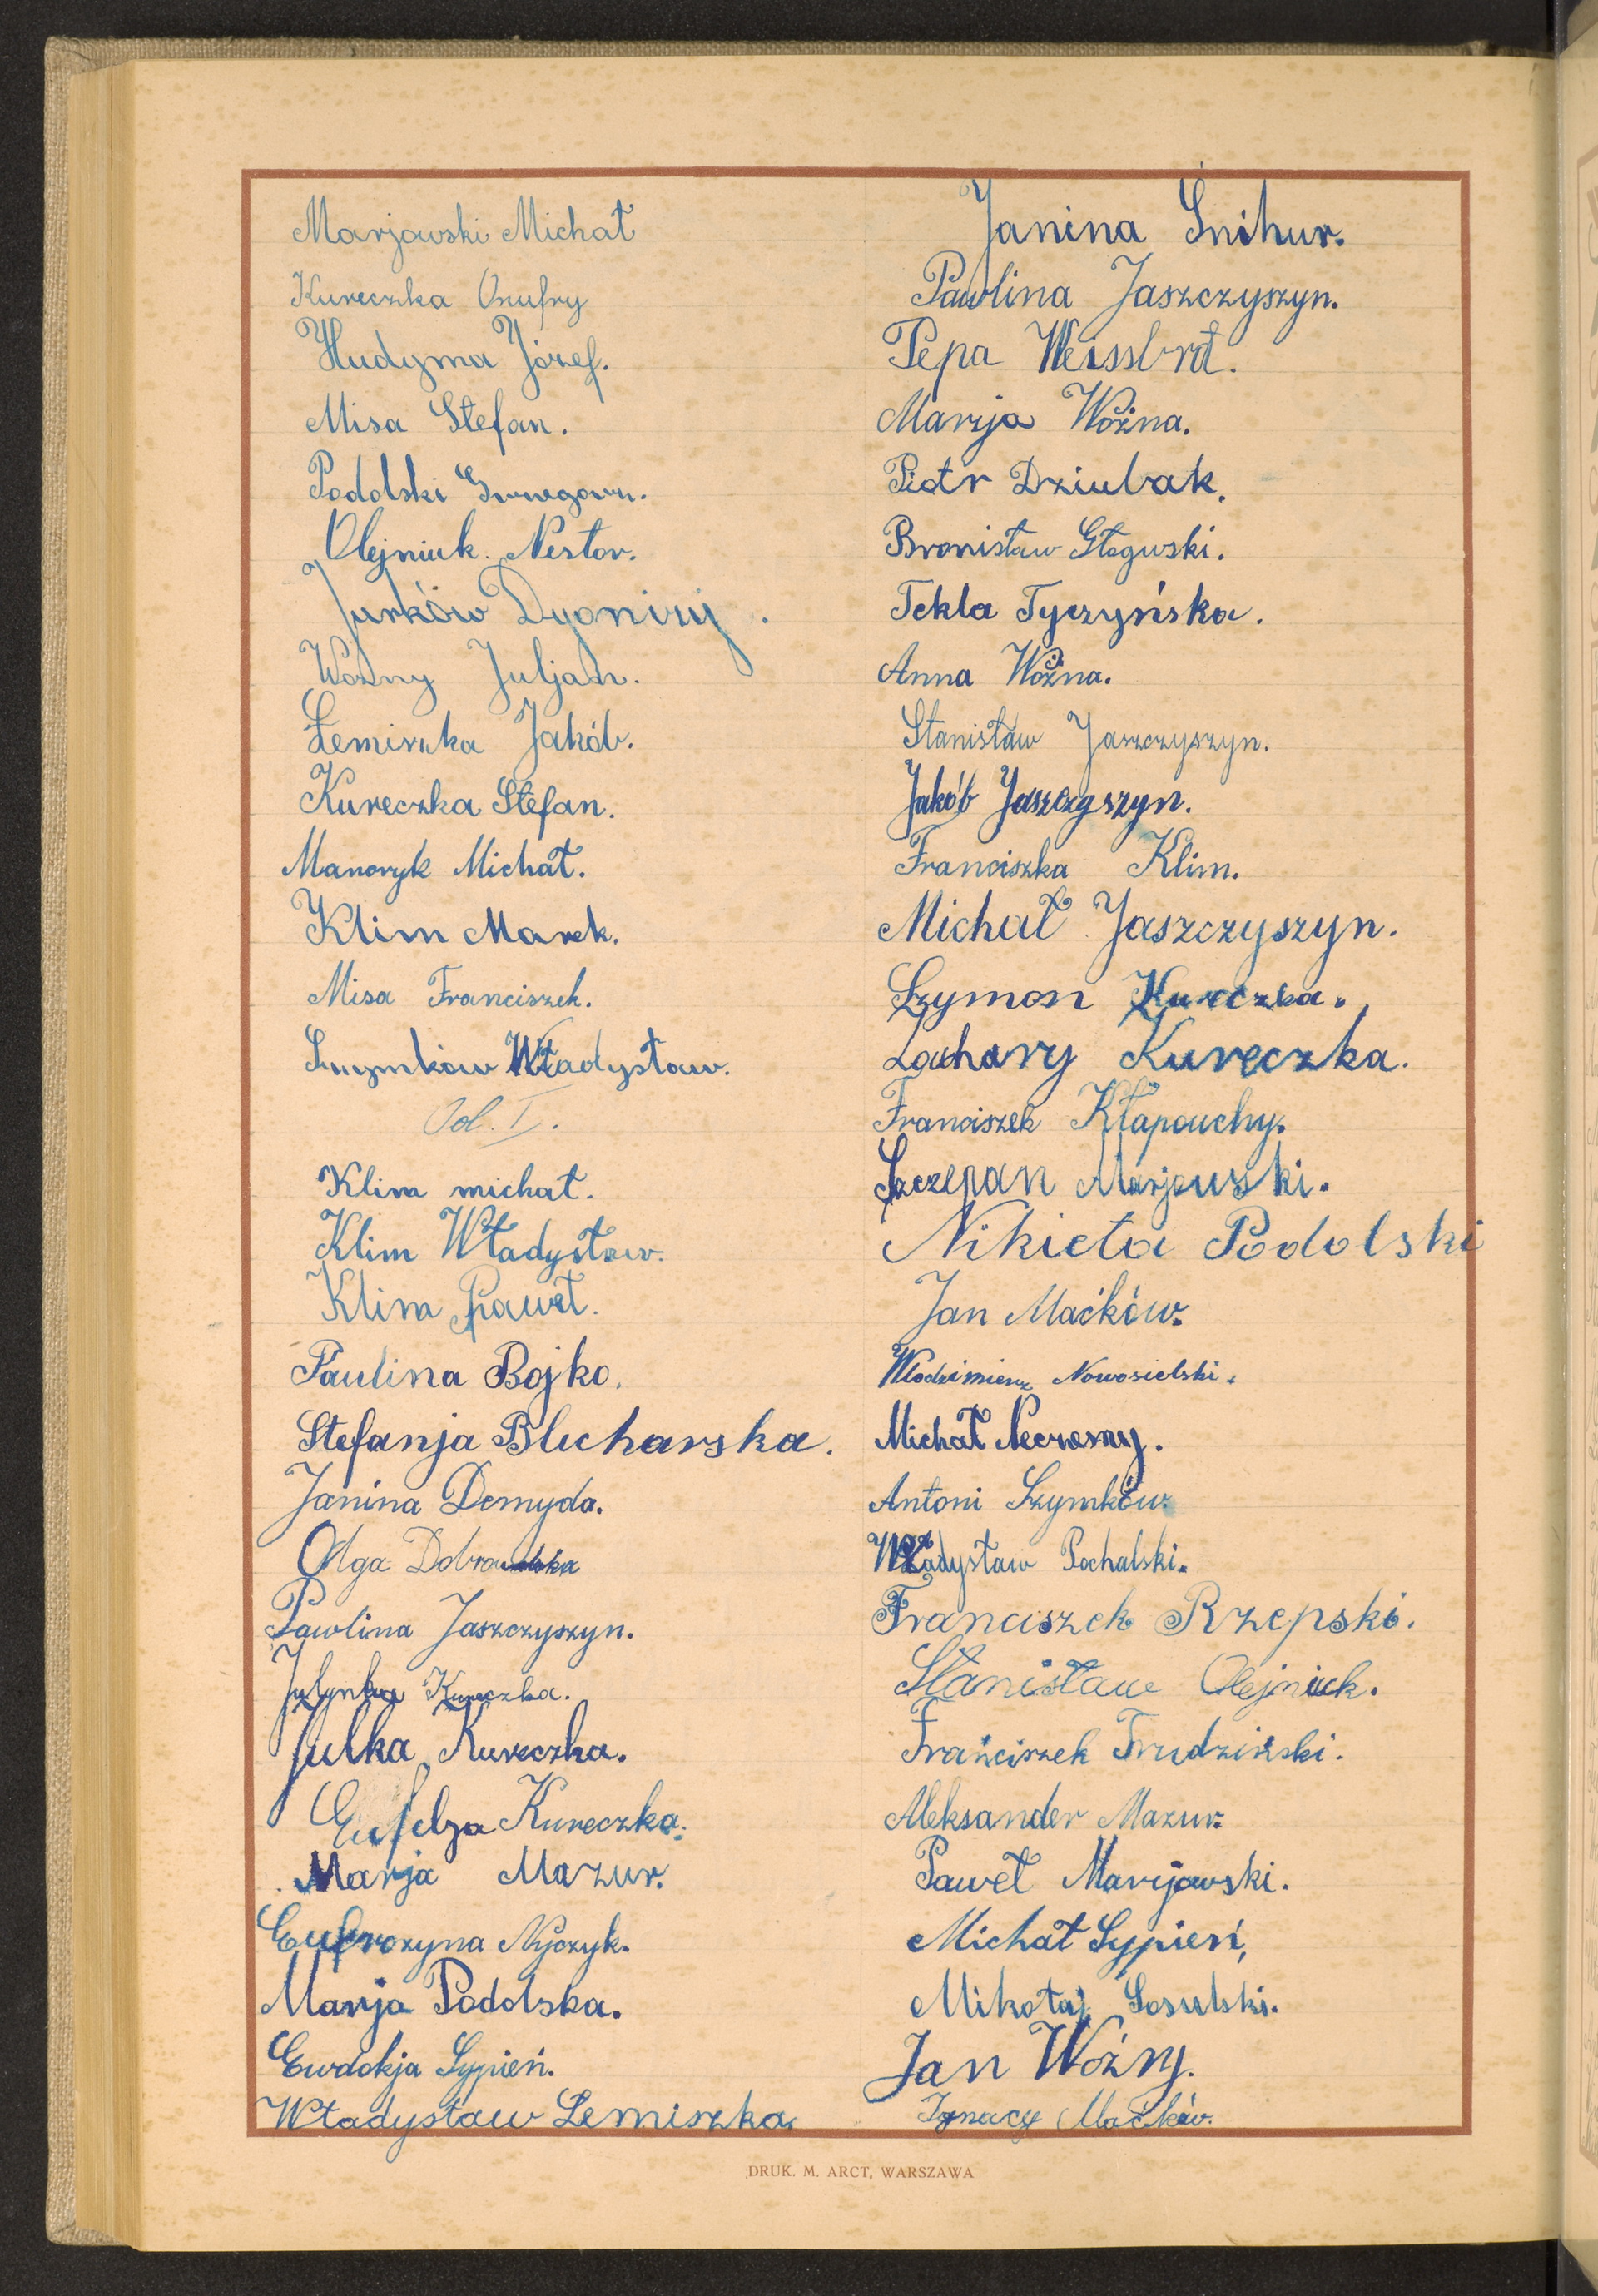 Marjawski Michał
Kureczka Onufry
Hudyma Józef.
Misa Stefan.
Podolski
Olejniuk. Nestor.
Jurków Dyonizy.
Woźny Juljan.
Łemiszka Jakób.
Kureczka Stefan.
Michał.
Klim Marek.
Misa Franciszek.
Szymków Władysław.
Od. I.
Klim michał.
Klim Władysław.
Klim Paweł.
Paulina Bojko.
Stefanja Blicharska.
Janina Demyda.
Olga Dobrowolska
Pawlina Jaszczyszyn.
Kureczka.
Julka Kureczka.
Kureczka.
Marja Mazur.
Eufrozyna Nyczyk.
Marja Podolska.
Ewdokja Sypień.
Władysław Lemiszka.
Janina Śnihur.
Pawlina Jaszczyszyn.
Pepa Weissbrot.
Marja Woźna.
Piotr Dziubak.
Bronisław Głoguski.
Tekla Tyczyńska.
Anna Woźna.
Stanisław Jaszczyszyn.
Jakób Jaszczyszyn.
Franciszka Klim.
Michał Jaszczyszyn.
Szymon Kureczka.
Zachary Kureczka.
Franciszek Kłapouchy.
Szczepan Marjowski.
Nikieta Podolski
Jan Maćków.
Włodzimierz Nowosielski.
Michał
Antoni Szymków.
Władysław Pochalski.
Franciszek Rzepski.
Stanisław Olejniuk.
Franciszek Trudziński.
Aleksander Mazur.
Paweł Marjowski.
Michał Sypień,
Mikołaj Sosulski.
Jan Woźny.
Ignacy Maćków.
DRUK. M. ARCT, WARSZAWA